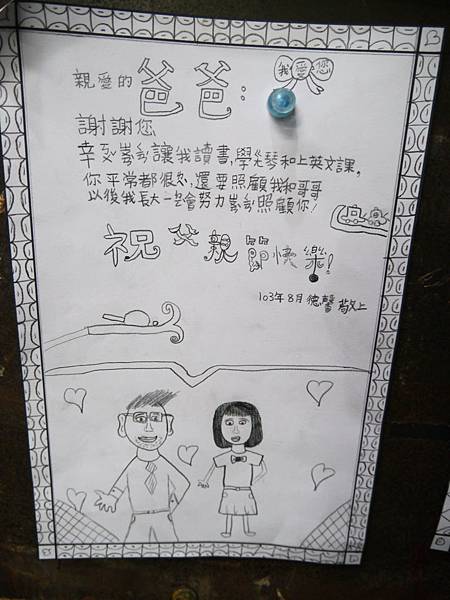 我愛您
親愛的爸爸：
謝謝您
辛讓我讀書,學琴和上英文課。
你平常都很忙,還要照顧我和哥哥
以後我長大一定會努力照顧你!
祝父親節快樂!
103年8月德馨敬上